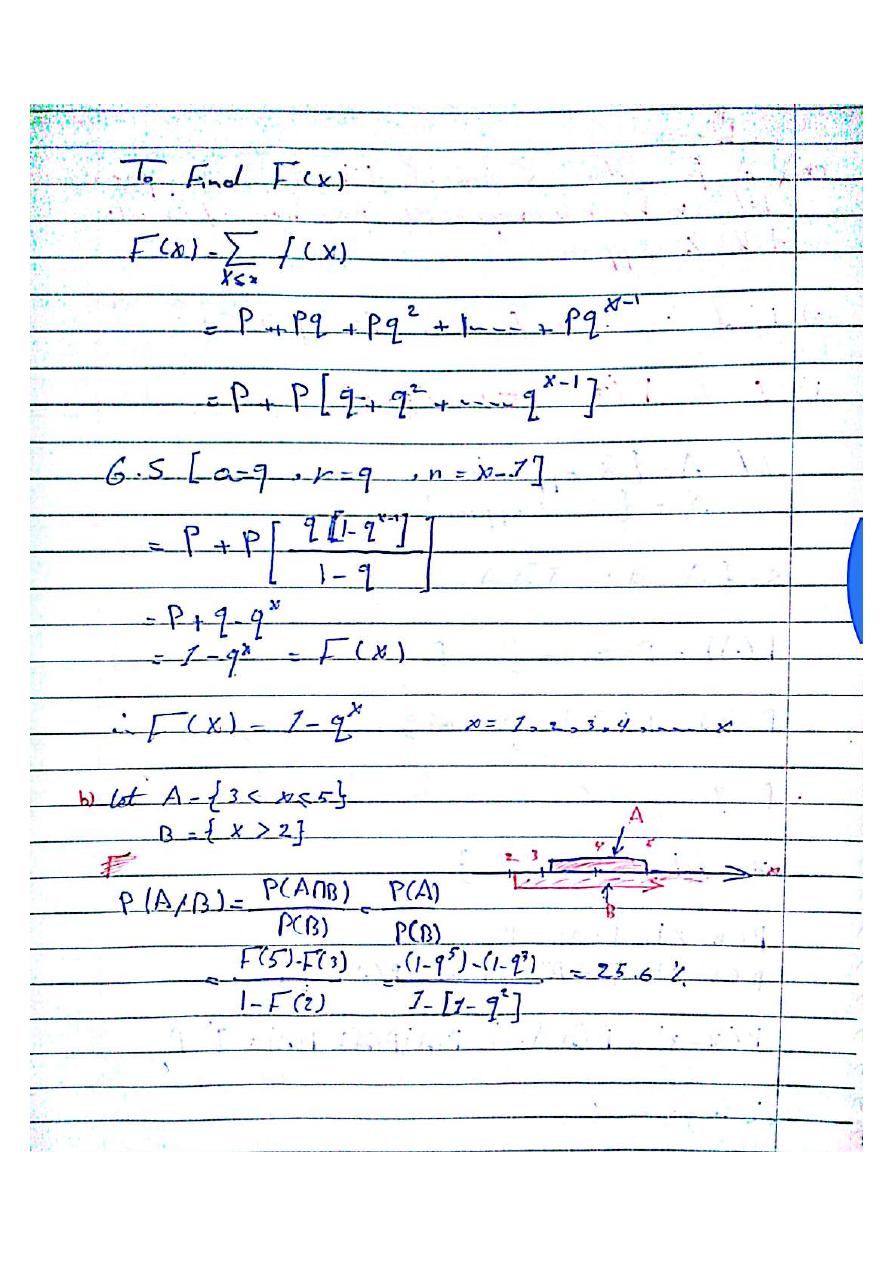 To Find F(x)
F(x) = Σ f(x)
X≤x
= P + Pq + Pq² + ---- + Pq^(x-1)
= P + P[q + q² + ---- q^(x-1)]
G.S [a=q, r=q, n=x-1]
= P + P[ q[1-q^(x-1)] / 1-q ]
= P + q - q^x
= 1 - q^x = F(x)
∴ F(x) = 1 - q^x x = 1, 2, 3, 4, ---- x
b) let A = {3 < x ≤ 5}
B = {x > 2}
A
2 3 4 5 x
B
P(A/B) = P(A∩B) / P(B) = P(A) / P(B)
= F(5)-F(3) / 1-F(2) = (1-q⁵)-(1-q³) / 1-[1-q²] = 25.6 %